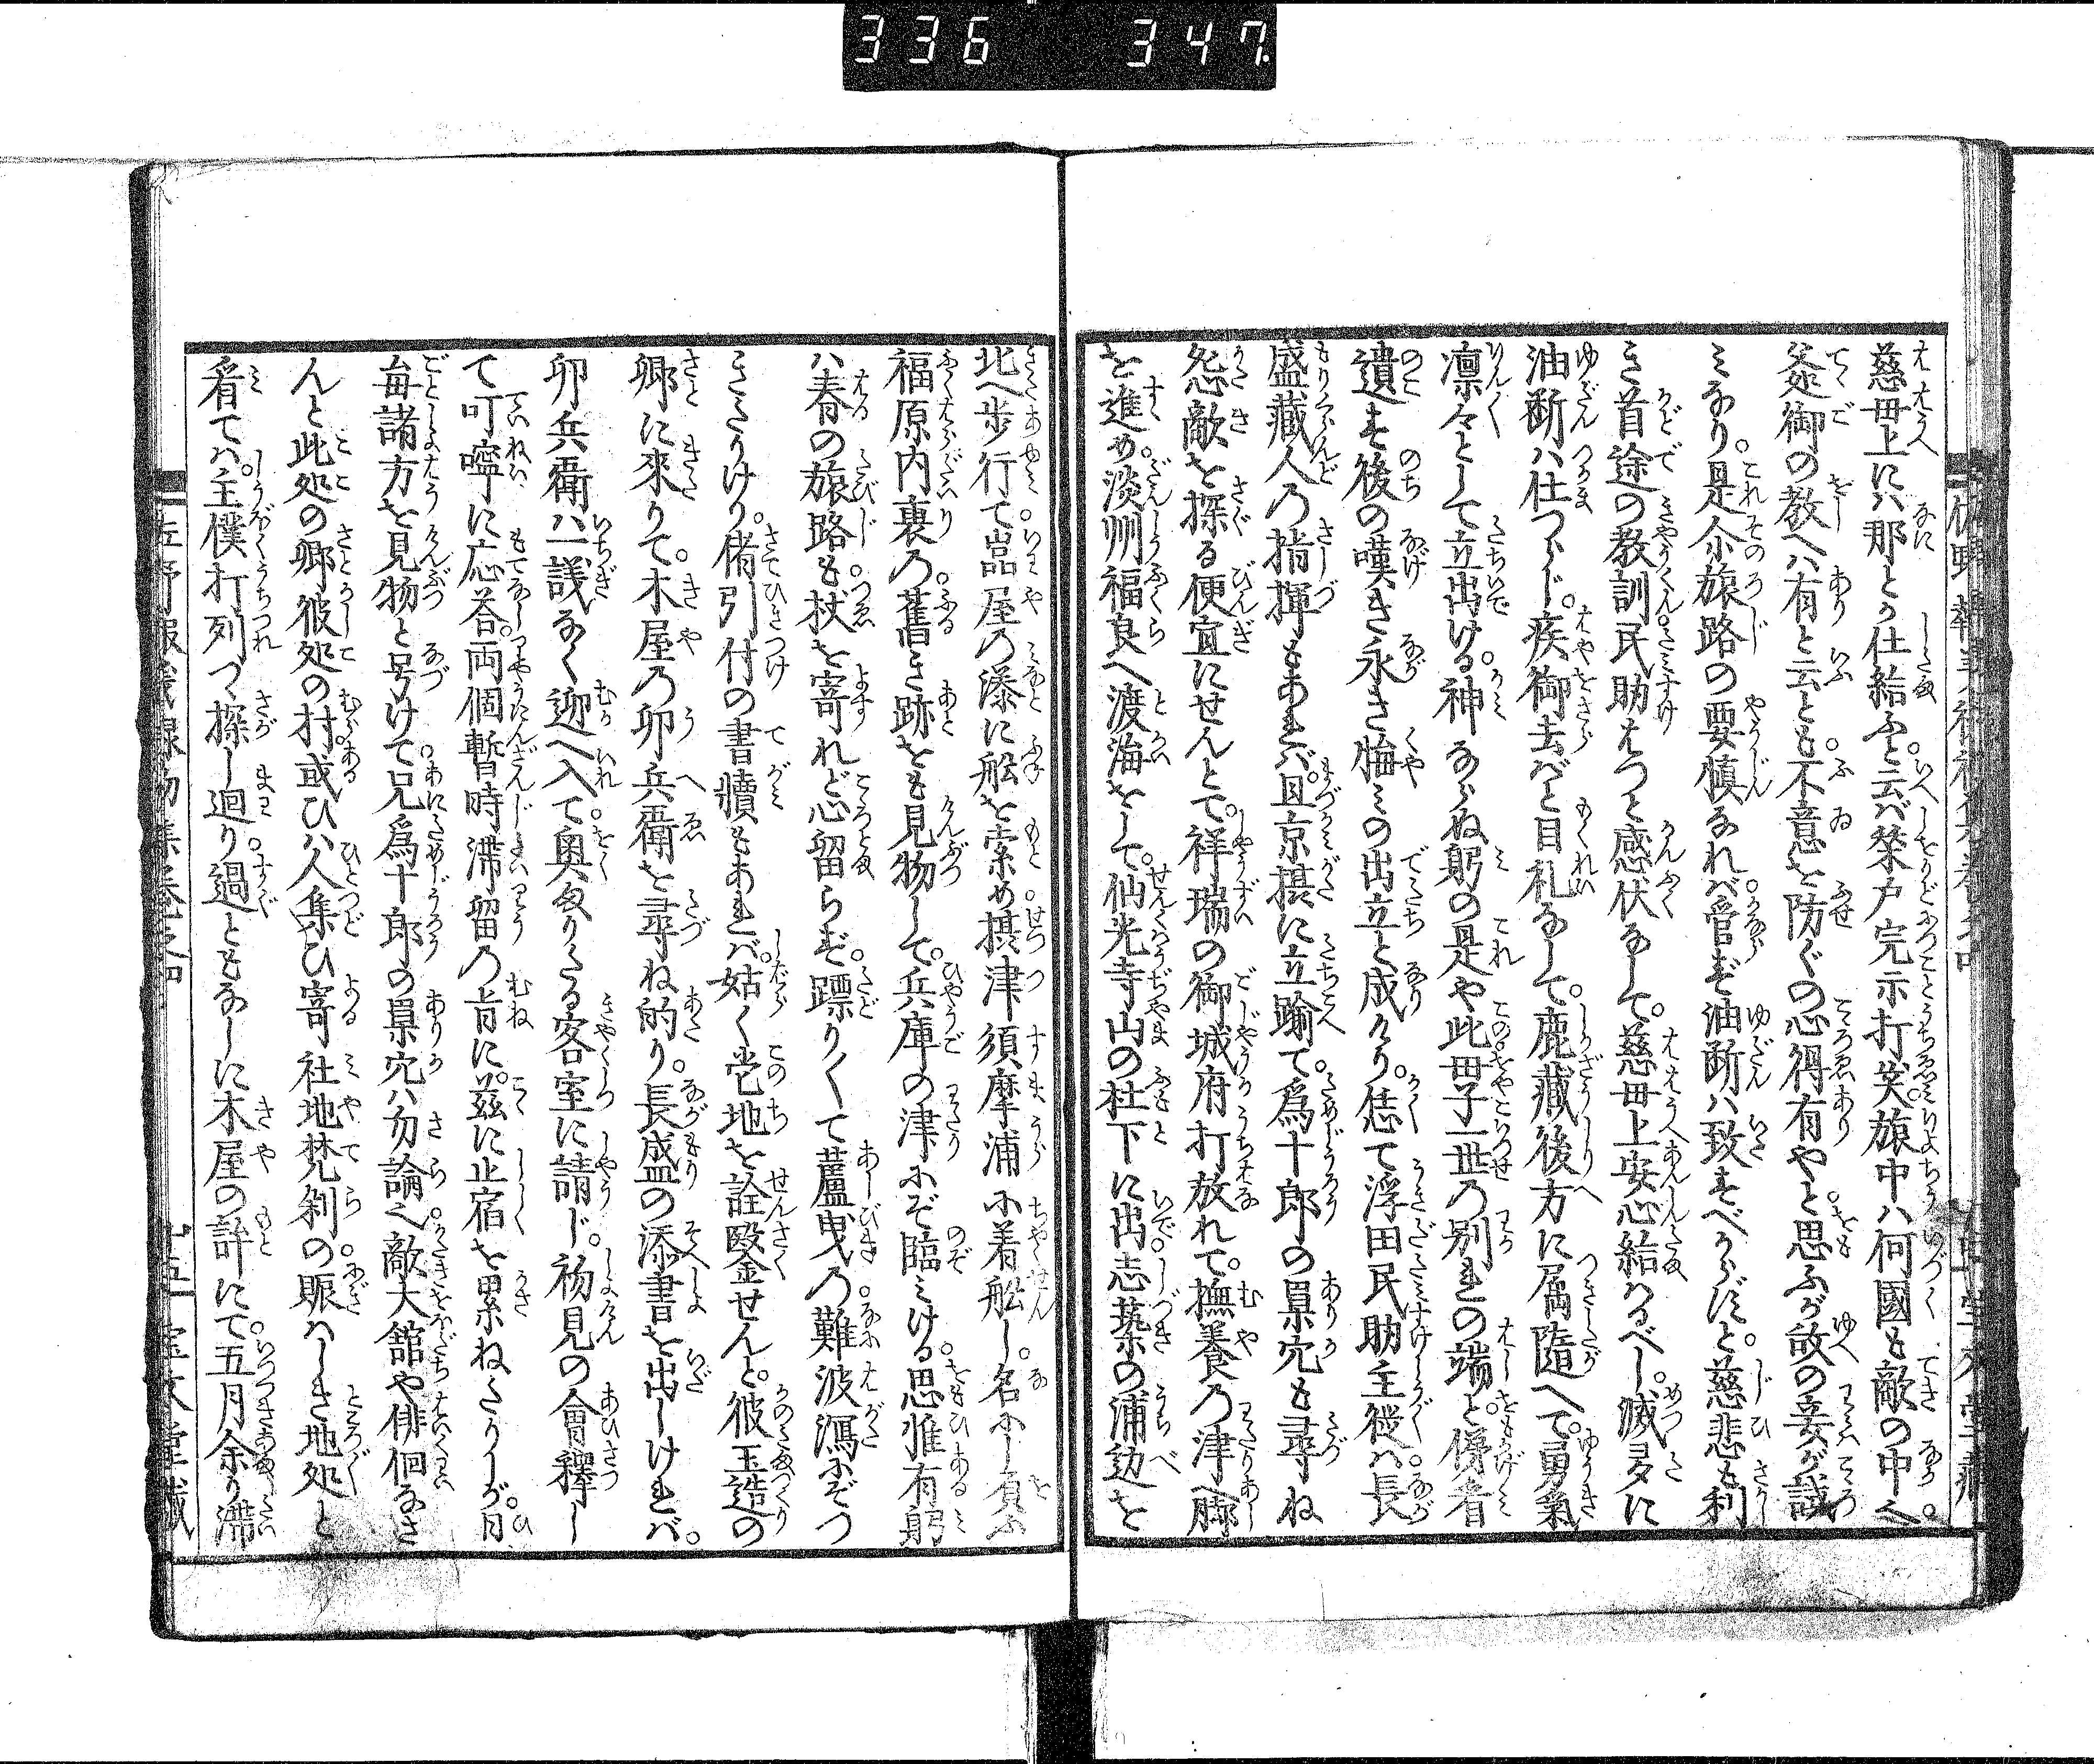 336 347
慈母上にハ那とか仕給ふと云バ榮戸完示打笑旅中ハ何國も敵の中へ
爺御の教へハ有と云とも不意を防ぐの心得有やと思ふが故の妾が誠
ミなり是尒旅路の要慎なれバ管ず油断ハ致すべからずと慈悲も利
き首途の教訓民助はつと感伏なして慈母上安心給はるべし滅多に
油断ハ仕つらじ疾御去バと目礼なして鹿藏後方に属随へて勇氣
凛々として立出ける神ならぬ躬の是や此母子一世の別れの端と俤者
遺す後の嘆き永き悔ミの出立と成けり恁て浮田民助主従ハ長
盛藏人の指揮もあれバ且京摂に立踰て爲十郎の巣穴も尋ね
怨敵を探る便宜にせんとて祥瑞の御城府打放れて撫養の津へ脚
を進め淡州福良へ渡海をして仙光寺山の杜下に出志築の浦辺を
北へ歩行て嵓屋の湊に舩を索め摂津須摩浦に着舩し名にし負ふ
福原内裏の舊き跡をも見物して兵庫の津にぞ臨ミける思惟有躬
ハ春の旅路も杖を寄れど心留らず蹀りくて蘆曳の難波瀉にぞつ
きたりけり偖引付の書牘もあれバ姑く此地を詮鑿せんと彼玉造の
郷に來りて木屋の卯兵衛を尋ね的り長盛の添書を出しけれバ
卯兵衛ハ一議なく迎へ入て奧まりたる客室に請じ初見の會釋し
て叮嚀に応荅両個暫時滞留の旨に茲に止宿を累ねたりしが日
毎諸方を見物と号けて兄爲十郎の巣穴ハ勿論へ敵大舘や俳徊なさ
んと此処の郷彼処の村或ひハ人集ひ寄社地梵刹の賑ハしき地処と
看てハ主僕打列つゝ探し廻り過ともなしに木屋の許にて五月余り滞
宝文堂藏